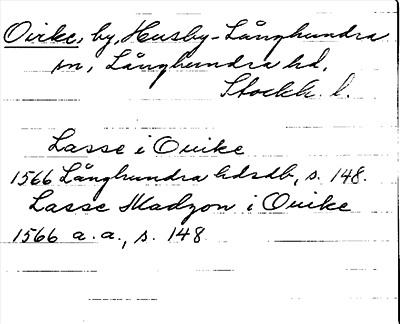 Ovike, by, Husby-Långhundra
sn, Långhundra hd,
Stockh. l.
Lasse i Ouike
1566 Långhundra hdsdb, s. 148.
Lasse Madzon i Ouike
1566 a. a., s. 148